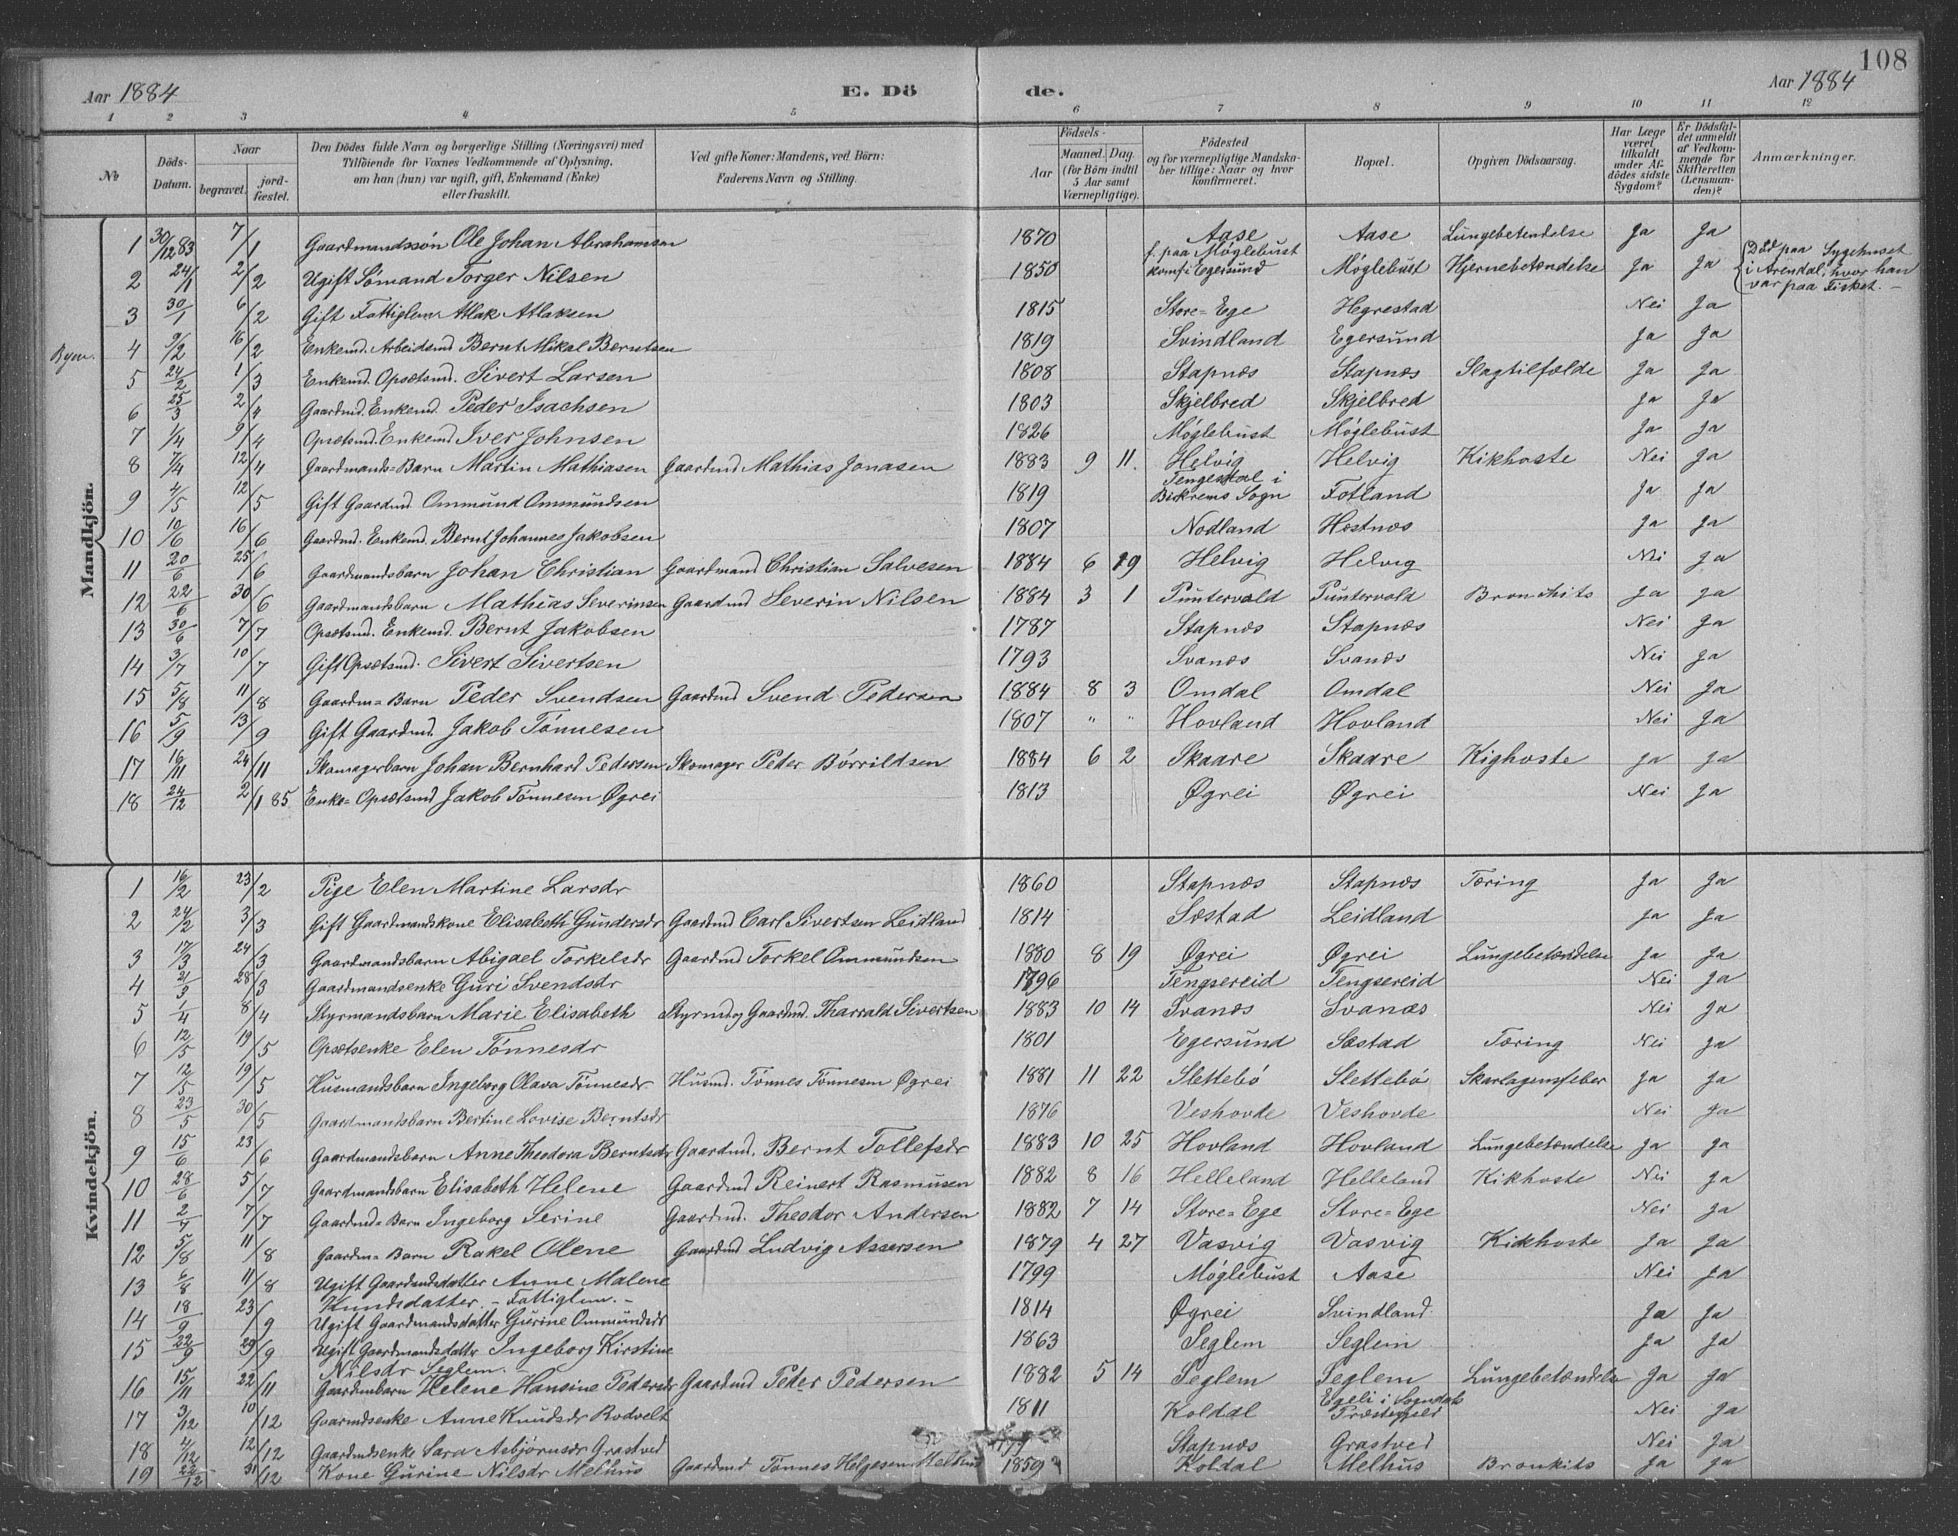 108
Aar 1884 E. Dö de. Aar 1884
1 2 3 4 5 6 7 8 9 10 11 12
№ Döds-Datum. Naar begravet. jord-fæstet. Den Dödes fulde Navn og borgerlige Stilling (Næringsvei) med Tilföiende for Voxnes Vedkommende af Oplysning, om han (hun) var ugift, gift, Enkemand (Enke) eller fraskilt. Ved gifte Koner: Mandens, ved Börn: Faderens Navn og Stilling. Födsels- Aar Maaned. Dag. (for Börn indtil 5 Aar samt Værnepligtige). Födested og for værnepligtige Mandskaber tillige: Naar og hvor konfirmeret. Bopæl. Opgiven Dödsaarsag. Har Læge været tilkaldt under Afdödes sidste Sygdom? Er Dödsfaldet anmeldt af Vedkommende for Skifteretten (Lensmanden)? Anmærkninger.
Mandkjön.
1 30/12 83 7/1 Gaardmandssön Ole Johan Abrahamsen 1870 Aase Aase Lungebetendelse Ja Ja
2 24/1 2/2 Ugift Sømand Torger Nilsen 1850 f. paa Møglebust konf i Egersund Møglebust Hjernebetændelse Ja Ja Död paa Sygehuset i Arendal, hvor han var paa Fisket.
3 30/1 6/2 Gift Fattiglem Atlak Atlaksen 1815 Store-Ege Hegrestad Nei Ja
Byen. 4 9/2 16/2 Enkemd. Arbeidsmd Bernt Mikal Berntsen 1819 Svindland Egersund Ja Ja
5 24/2 1/3 Enkemd. Opsætsmd. Sivert Larsen 1808 Stapnæs Stapnæs Slagtilfælde Ja Ja
6 25/3 2/4 Gaardmd. Enkemd. Peder Isachsen 1803 Skjelbred Skjelbred Ja Ja
7 1/4 9/4 Opsætsmd. Enkemd Iver Johnsen 1826 Møglebust Møglebust Ja Ja
8 7/4 12/4 Gaardmands-Barn Martin Mathiasen Gaardmd Mathias Jonasen 1883 9 11. Helvig Helvig Kikhoste Nei Ja
9 4/5 12/5 Gift Gaardmd Ommund Ommundsen 1819 Tengesdal i Birkrems Sogn Fotland Ja Ja
10 10/6 16/6 Gaardmd. Enkemd. Bernt Johannes Jakobsen 1807 Nodland Hæstnæs Ja Ja
11 20/6 25/6 Gaardmandsbarn Johan Christian Gaardmand Christian Salvesen 1884 6 19 Helvig Helvig Nei Ja
12 22/6 30/6 Gaardmandsbarn Mathias Severinsen Gaardmd Severin Nilsen 1884 3 1 Puntervold Puntervold Bronchits Ja Ja
13 30/6 7/7 Opsætsmd. Enkemd. Bernt Jakobsen 1787 Stapnæs Stapnæs Nei Ja
14 3/7 10/7 Gift Opsætsmd. Sivert Sivertsen 1793 Svanæs Svanæs Nei Ja
15 5/8 11/8 Gaardm-Barn Peder Svendsen Gaardmd Svend Pedersen 1884 8 3 Omdal Omdal Nei Ja
16 5/9 13/9 Gift Gaardmd. Jakob Tönnesen 1807 " " Hovland Hovland Nei Ja
17 16/11 24/11 Skomagerbarn Johan Bernhard Pedersen Skomager Peter Börrildsen 1884 6 2 Skaare Skaare Kighoste Ja Ja
18 24/12 2/1 85 Enke-Opsætsmd Jakob Tönnesen Øgrei 1813 Øgrei Øgrei Nei Ja
Kvindekjön.
1 16/2 23/2 Pige Elen Martine Larsdr 1860 Stapnæs Stapnæs Tæring Ja Ja
2 24/2 3/3 Gift Gaardmandskone Elisabeth Gundersdr Gaardmd Carl Sivertsen Leidland 1814 Sæstad Leidland Ja Ja
3 17/3 24/3 Gaardmandsbarn Abigael Torkelsdr Gaardmd Torkel Ommundsen 1880 8 19 Øgrei Øgrei Lungebetændelse Ja Ja
4 21/3 28/3 Gaardmandsenke Guri Svendsdr 1796 Tengsereid Tengsereid Nei Ja
5 1/4 8/4 Styrmandsbarn Marie Elisabeth Styrmd og Gaardmd. Tharrald Sivertsen 1883 10 14 Svanæs Svanæs Nei Ja
6 12/5 19/5 Opsætsenke Elen Tönnesdr 1801 Egersund Sæstad Tæring Nei Ja
7 12/5 19/5 Husmandsbarn Ingeborg Olava Tönnesdr. Husmd. Tönnes Tönnesen Øgrei 1881 11 22 Slettebö Slettebö Skarlagensfeber Ja Ja
8 23/5 30/5 Gaardmandsbarn Bertine Lovise Berntsdr 1876 Veshovde Veshovde Nei Ja
9 15/6 23/6 Gaardmandsbarn Anne Theodora Berntsdr Gaardmd. Bernt Tollefsdr 1883 10 25 Hovland Hovland Lungebetændelse Ja Ja
10 28/6 5/7 Gaardmandsbarn Elisabeth Helene Gaardmd Reinert Rasmusen 1882 8 16 Helleland Helleland Kikhoste Nei Ja
11 2/7 7/7 Gaardmd-Barn Ingeborg Serine Gaardmd. Theodor Andersen 1882 7 14 Store-Ege Store-Ege Nei Ja
12 5/8 11/8 Gaardm-Barn Rakel Olene Gaardmd Ludvig Assersen 1879 4 27 Vasvig Vasvig Kikhoste Ja Ja
13 6/8 11/8 Ugift Gaardmdsdatter Anne Malene Knudsdatter - Fattiglem. - 1799 Møglebust Aase Nei Ja
14 18/9 23/9 Ugift Gaardmandsdatter Gurine Ommundsdr 1814 Øgrei Svindland Ja Ja
15 22/9 29/9 Ugift Gaardmandsdatter Ingeborg Kirstine Nilsdr Seglem. 1863 Seglem Seglem Ja Ja
16 15/11 22/11 Gaardmbarn Helene Hansine Pedersdr Gaardmd Peder Pedersen 1882 5 14 Seglem Seglem Lungebetændelse Ja Ja
17 3/12 10/12 Gaardmdsenke Anne Knudsdr Rodvelt 1811 Koldal Egeli i Sogndals Præstegjeld Nei Ja
18 4/12 12/12 Gaardmdsenke Sara Asbjörnsdr Grastved Stapnæs Grastved Nei Ja
19 22/12 31/12 Kone Gurine Nilsdr Melhus Gaardmd Tönnes Helgesen Melhus 1859 Koldal Melhus Bronkits Ja Ja